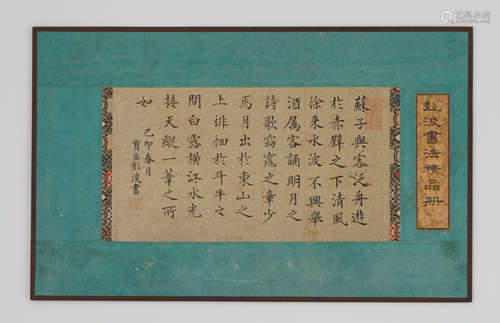 彭浚書法精品册
蘇子與客泛舟遊
於赤壁之下清風
徐来水波不興舉
酒属客誦明月之
詩歌窈窕之章少
焉月出於東山之
上徘徊於斗牛之
間白露橫江水光
接天縱一葦之所
如
己卯春月
寶臣彭浚書